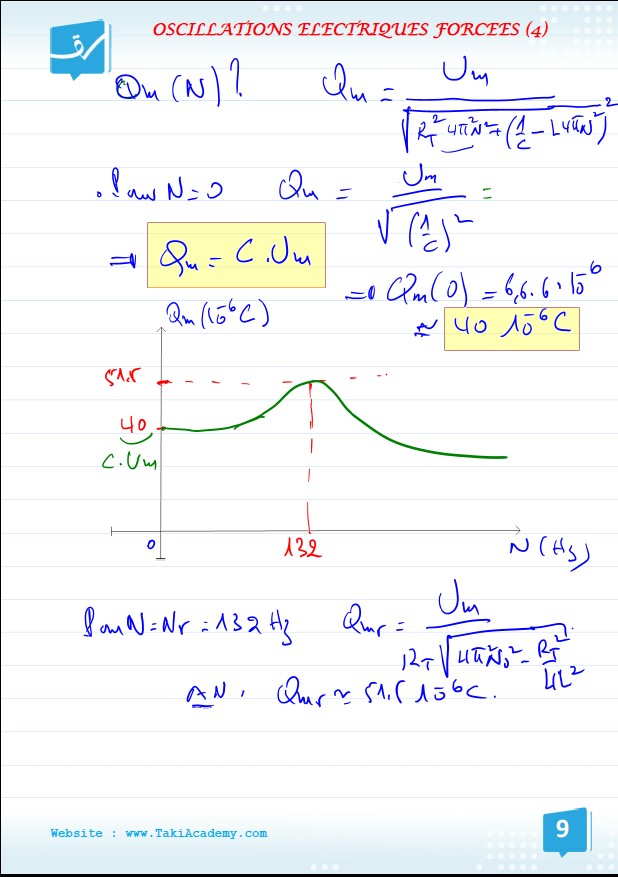 OSCILLATIONS ELECTRIQUES FORCEES (4)
Qm (N) ? Qm = Um / √(R_T² 4π²N² + (1/C - L4π²N²)²)
. Pour N = 0 Qm = Um / √((1/C)²) =
⇒ Qm = C . Um
⇒ Qm(0) = 6,6 . 6 . 10⁻⁶
≃ 40 10⁻⁶ C
Qm (10⁻⁶ C)
51.5
40
C.Um
0
132
N (Hz)
Pour N = Nr = 132 Hz Qmr = Um / R_T √(4π²N₀² - R_T²/4L²)
AN . Qmr ≃ 51.5 10⁻⁶ C.
Website : www.TakiAcademy.com
9